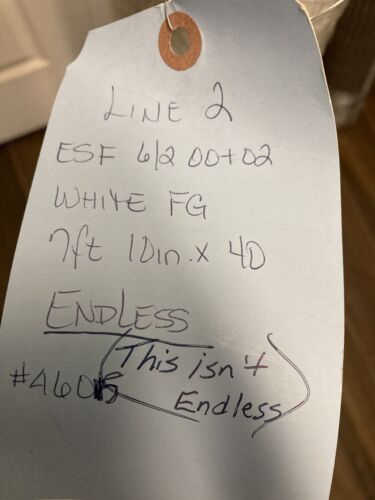 LINE 2
ESF 6/2 00+02
WHITE FG
7ft 10in. x 40
ENDLESS
This isn't
Endless